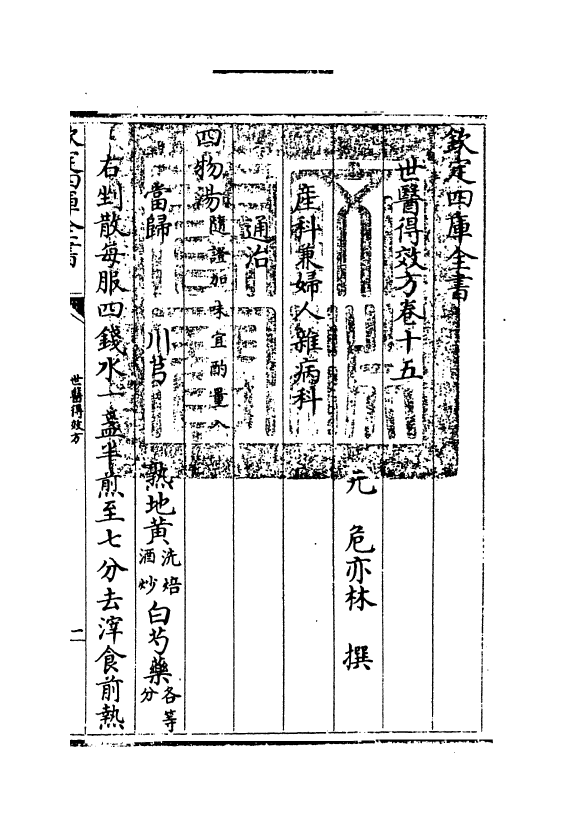 欽定四庫全書
世醫得效方卷十五
元 危亦林 撰
産科兼婦人雜病科
通治
四物湯隨證加味宜酌量入
當歸 川芎 熟地黄洗焙酒炒 白芍藥各等分
右剉散每服四錢水一盞半煎至七分去滓食前熱
欽定四庫全書
世醫得效方
二